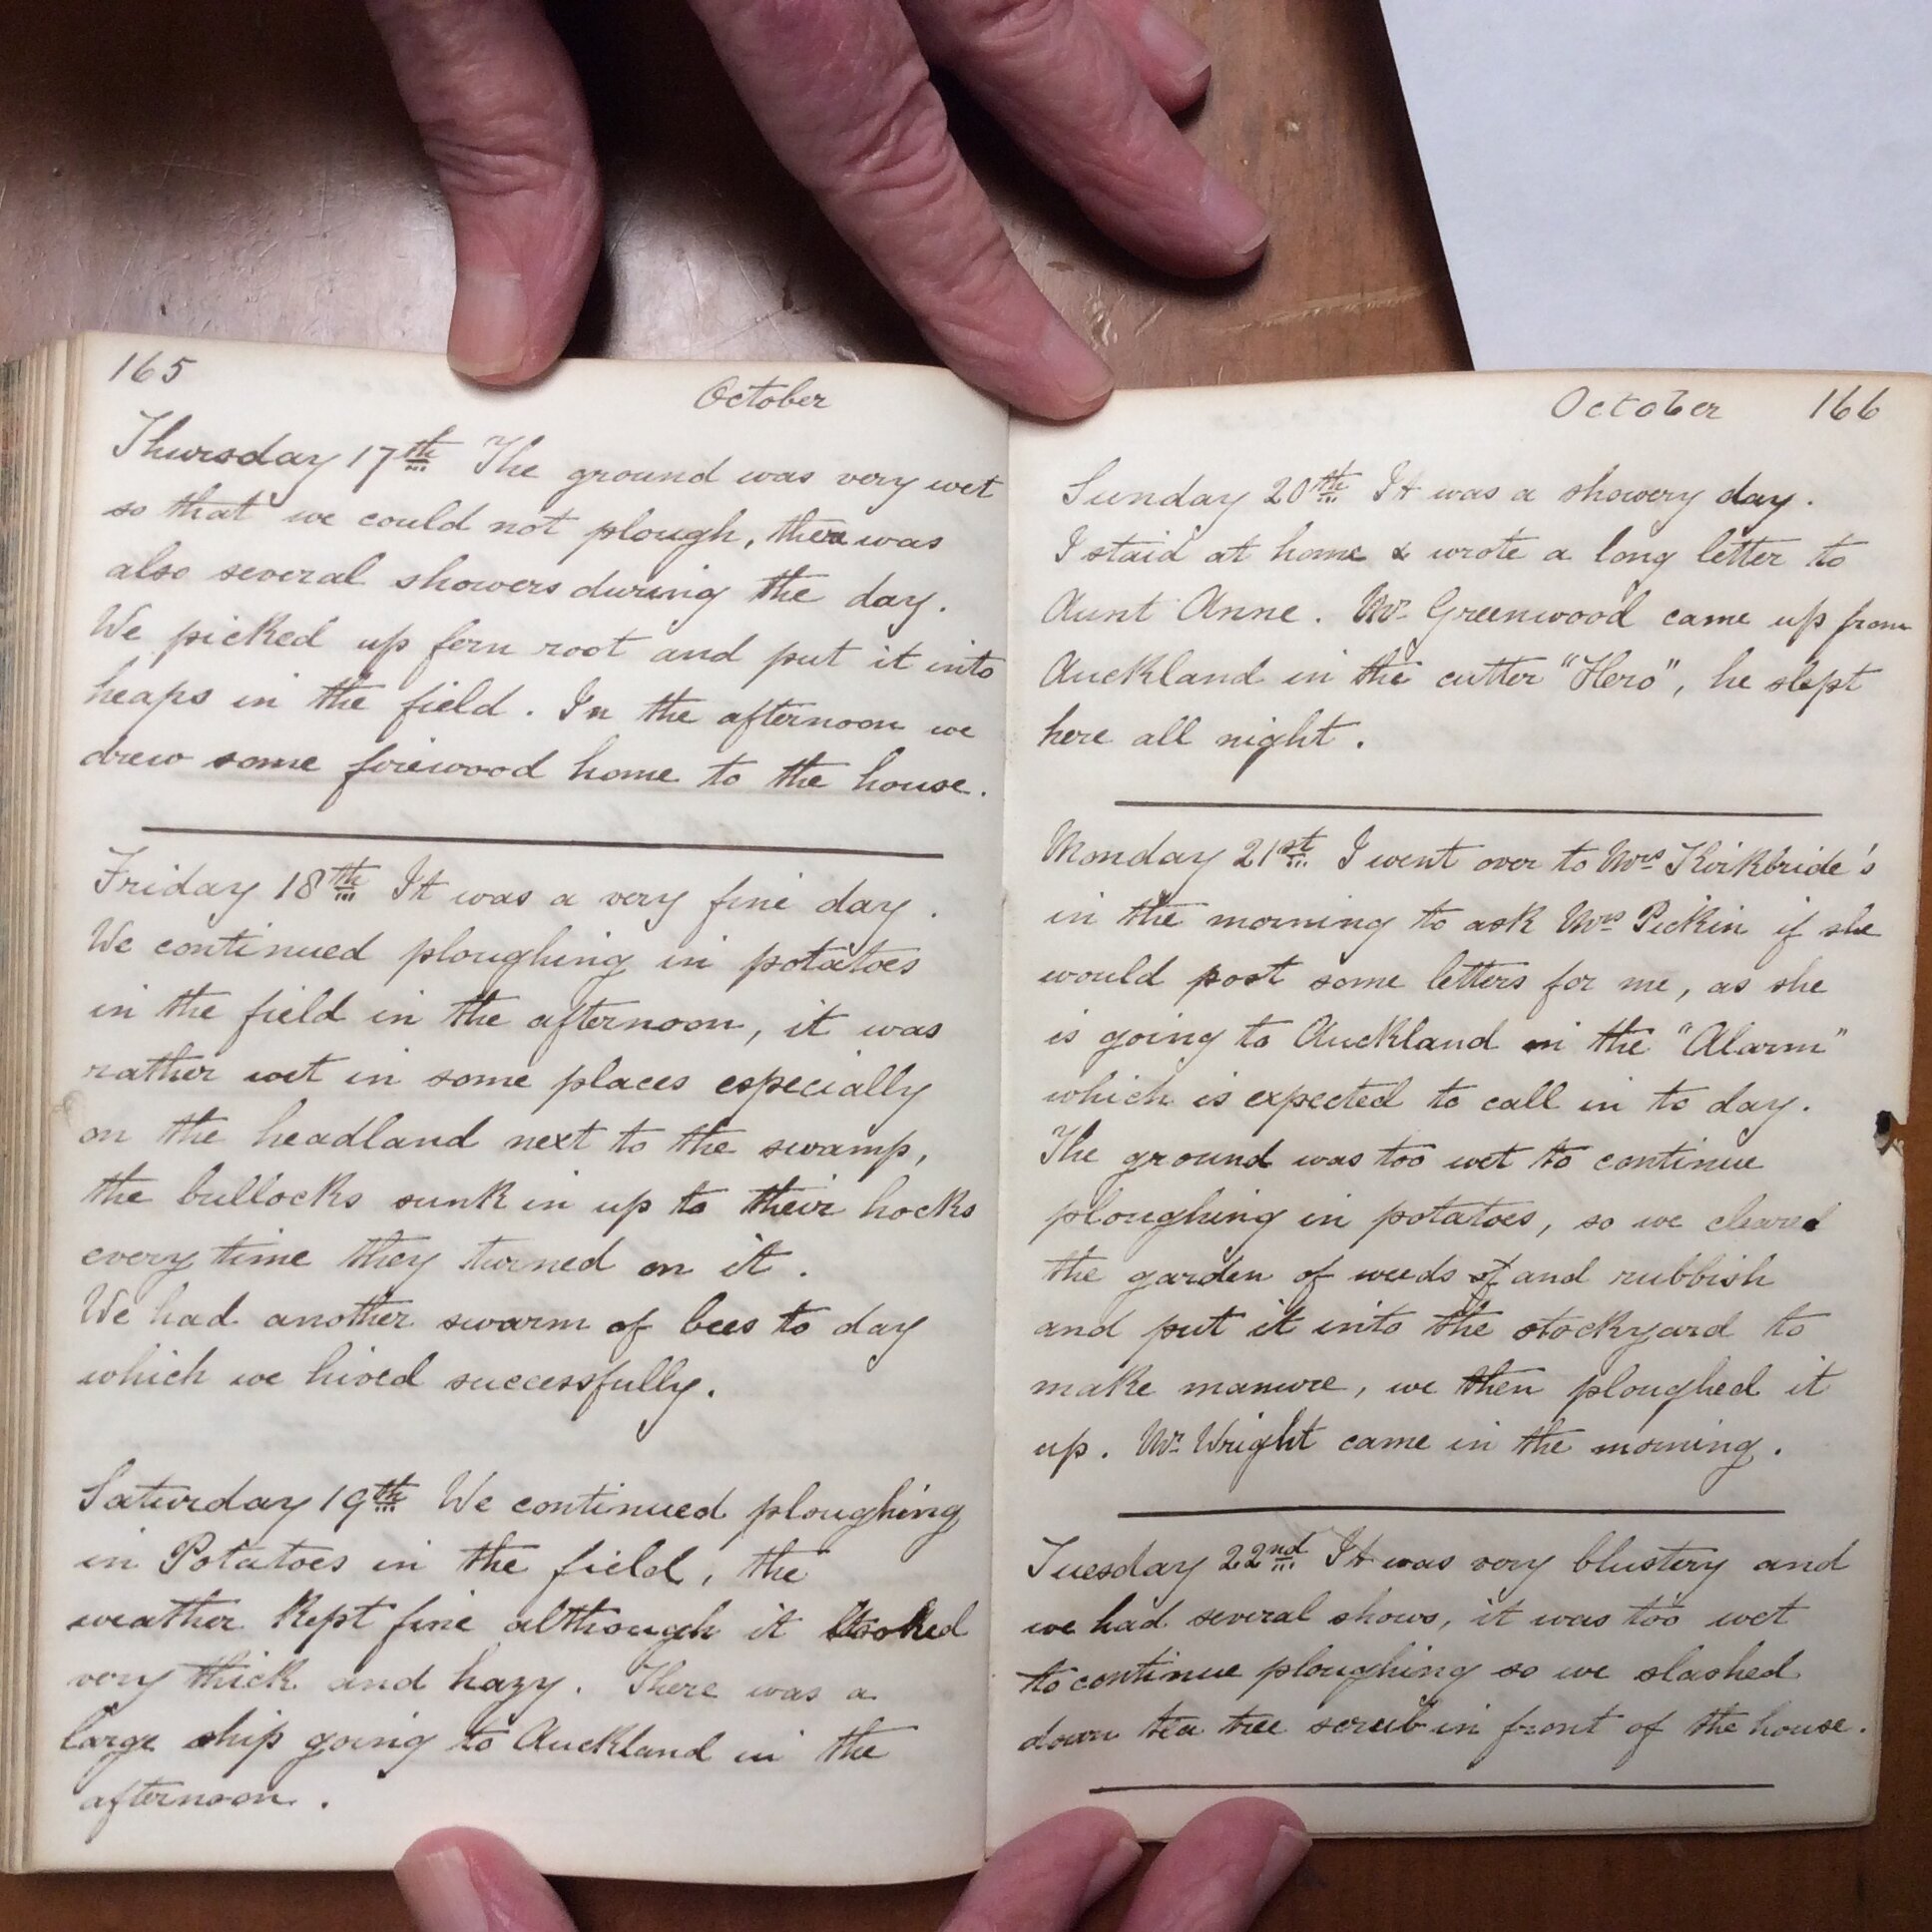 165
October
Thursday 17th The ground was very wet
so that we could not plough, there was
also several showers during the day.
We picked up fern root and put it into
heaps in the field. In the afternoon we
drew some firewood home to the house.
Friday 18th It was a very fine day.
We continued ploughing in potatoes
in the field in the afternoon, it was
rather wet in some places especially
on the headland next to the swamp,
the bullocks sunk in up to their hocks
every time they turned on it.
We had another swarm of bees to day
which we hived successfully.
Saturday 19th We continued ploughing
in Potatoes in the field, the
weather kept fine although it looked
very thick and hazy. There was a
large ship going to Auckland in the
afternoon.
October 166
Sunday 20th It was a showery day.
I staid at home & wrote a long letter to
Aunt Anne. Mr Greenwood came up from
Auckland in the cutter "Hero", he slept
here all night.
Monday 21st I went over to Mrs Kirkbride's
in the morning to ask Mrs Pickin if she
would post some letters for me, as she
is going to Auckland in the "Alarm"
which is expected to call in to day.
The ground was too wet to continue
ploughing in potatoes, so we cleared
the garden of weeds of and rubbish
and put it into the stockyard to
make manure, we then ploughed it
up. Mr Wright came in the morning.
Tuesday 22nd It was very blustery and
we had several shows, it was too wet
to continue ploughing so we slashed
down tea tree scrub in front of the house.